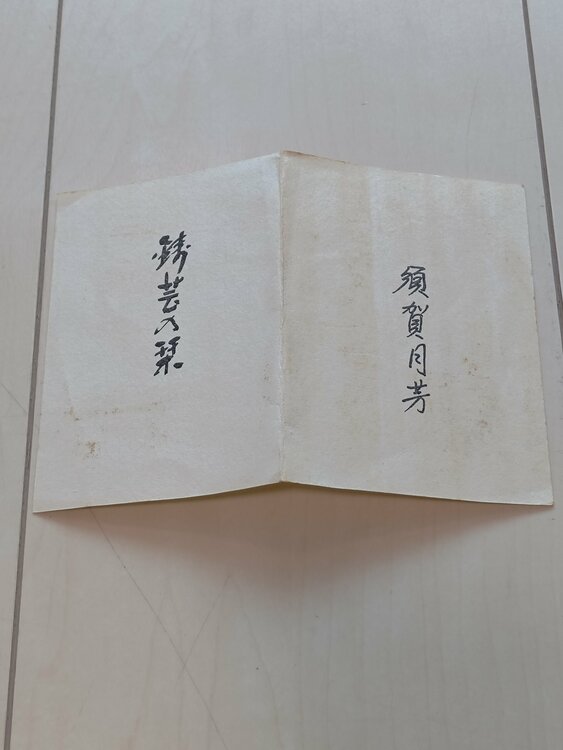 須賀月芳
鋳芸の栞